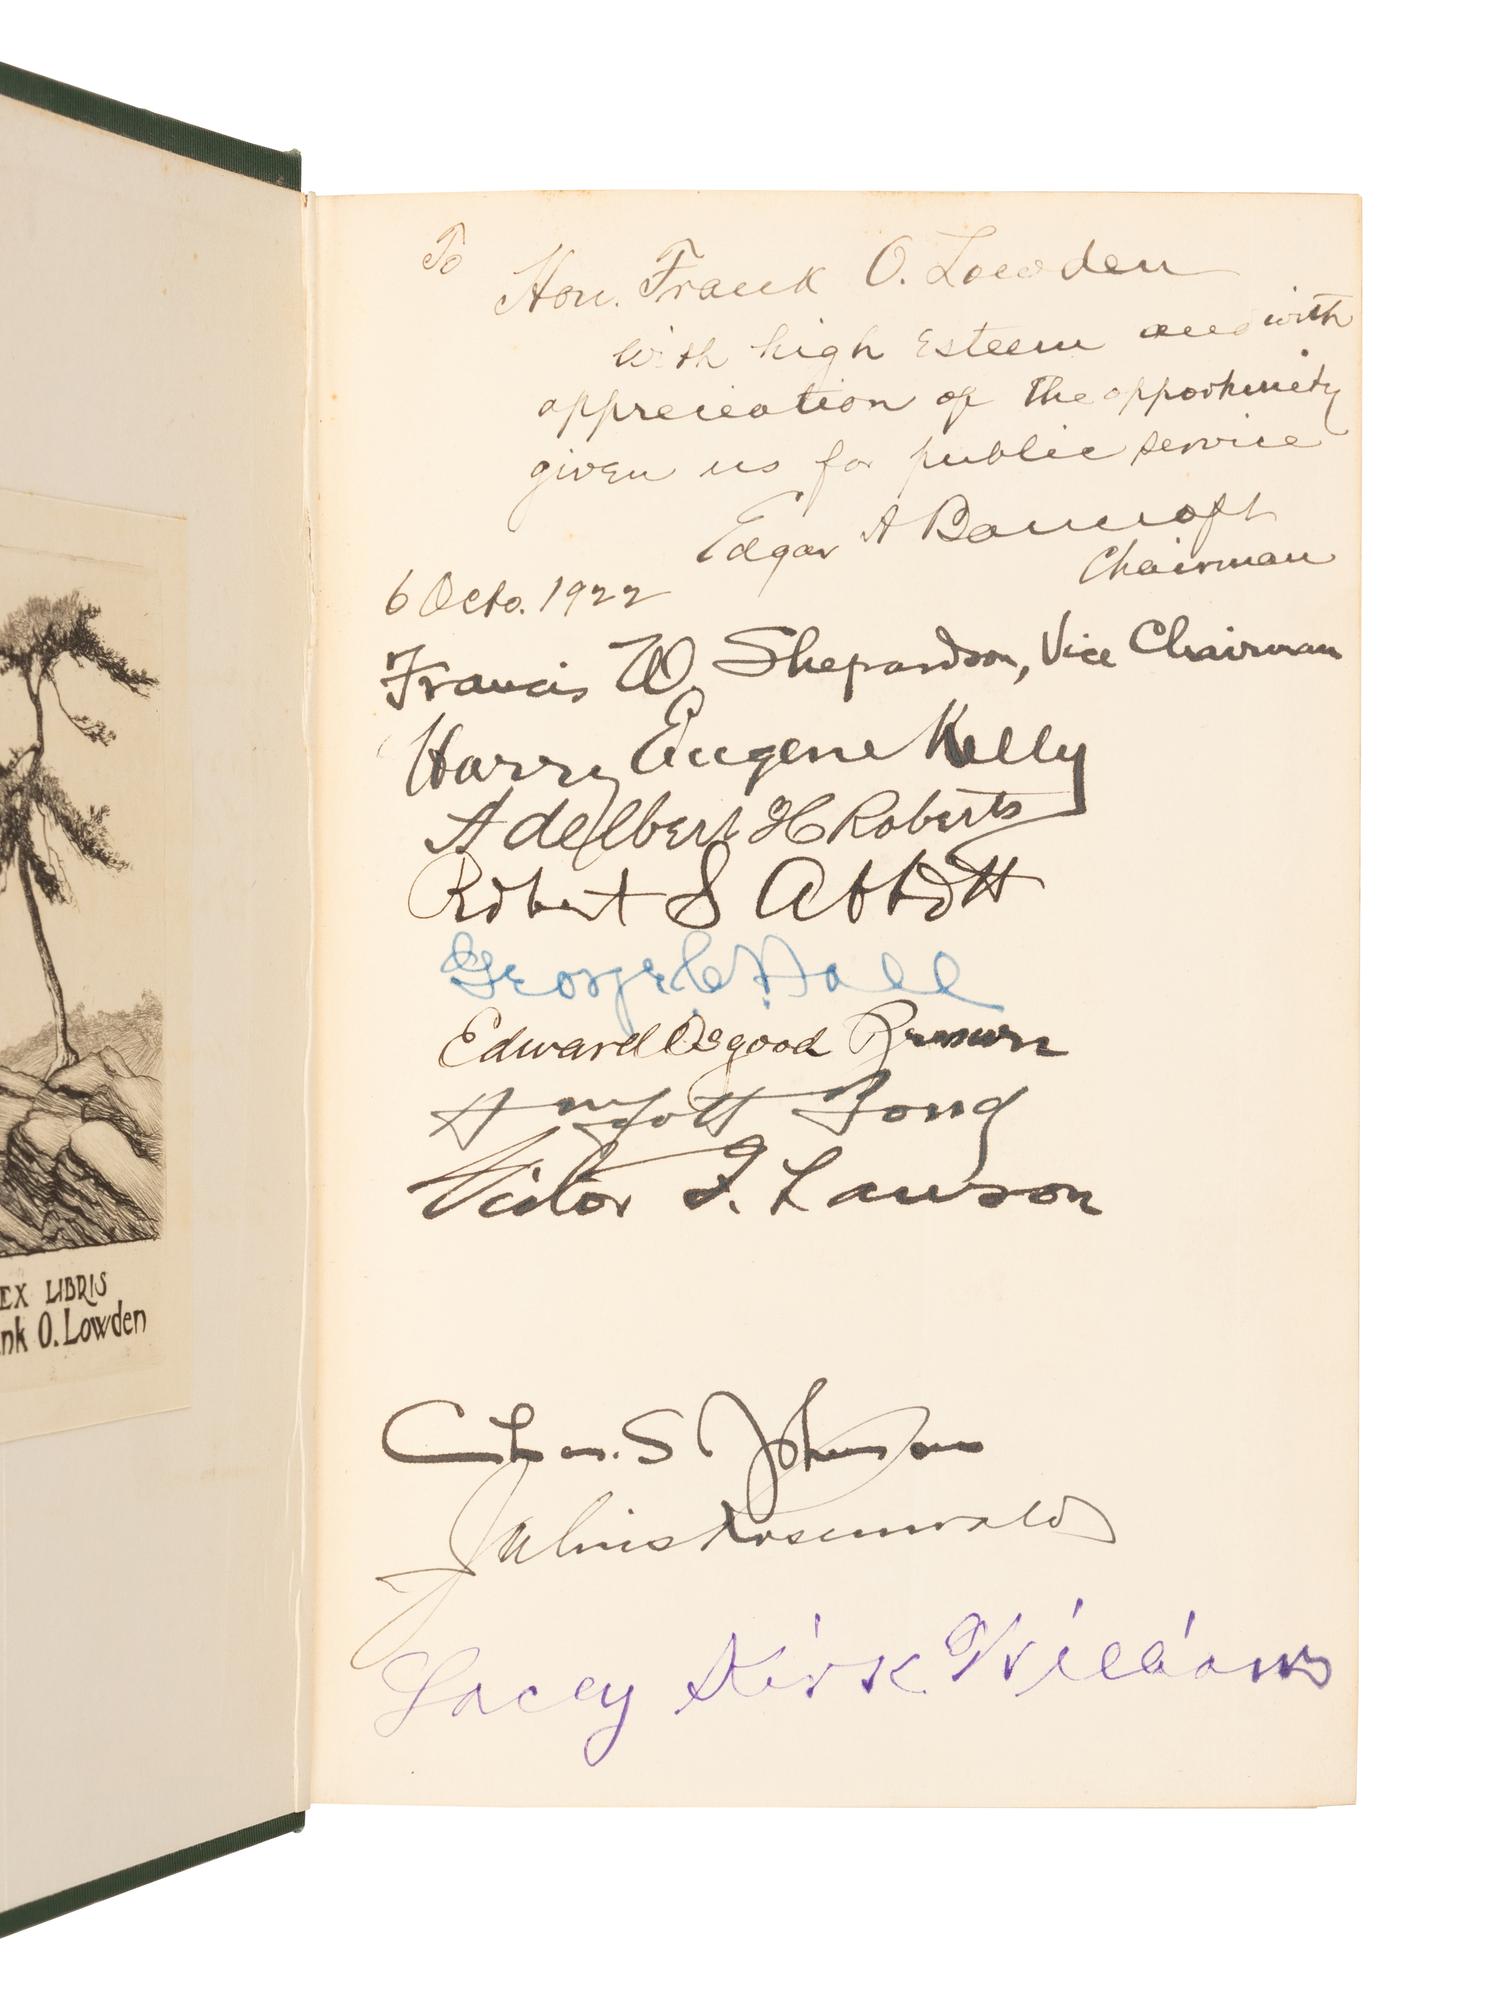 To
Hon. Frank O. Lowden
with high esteem and with
appreciation of the opportunity
given us for public service
Edgar A Bancroft
Chairman
6 Octo. 1922
Francis W. Shepardson, Vice Chairman
Harry Eugene Kelly
Adelbert H Roberts
Robert S Abbott
George C. Hall
Edward Osgood Brown
Victor F. Lawson
Chas. S Johnson
Julius Rosenwald
Lacey Kirk Williams
EX LIBRIS
nk O. Lowden